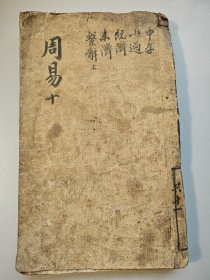 中孚
小過
既濟
未濟
繫辭上
周易十